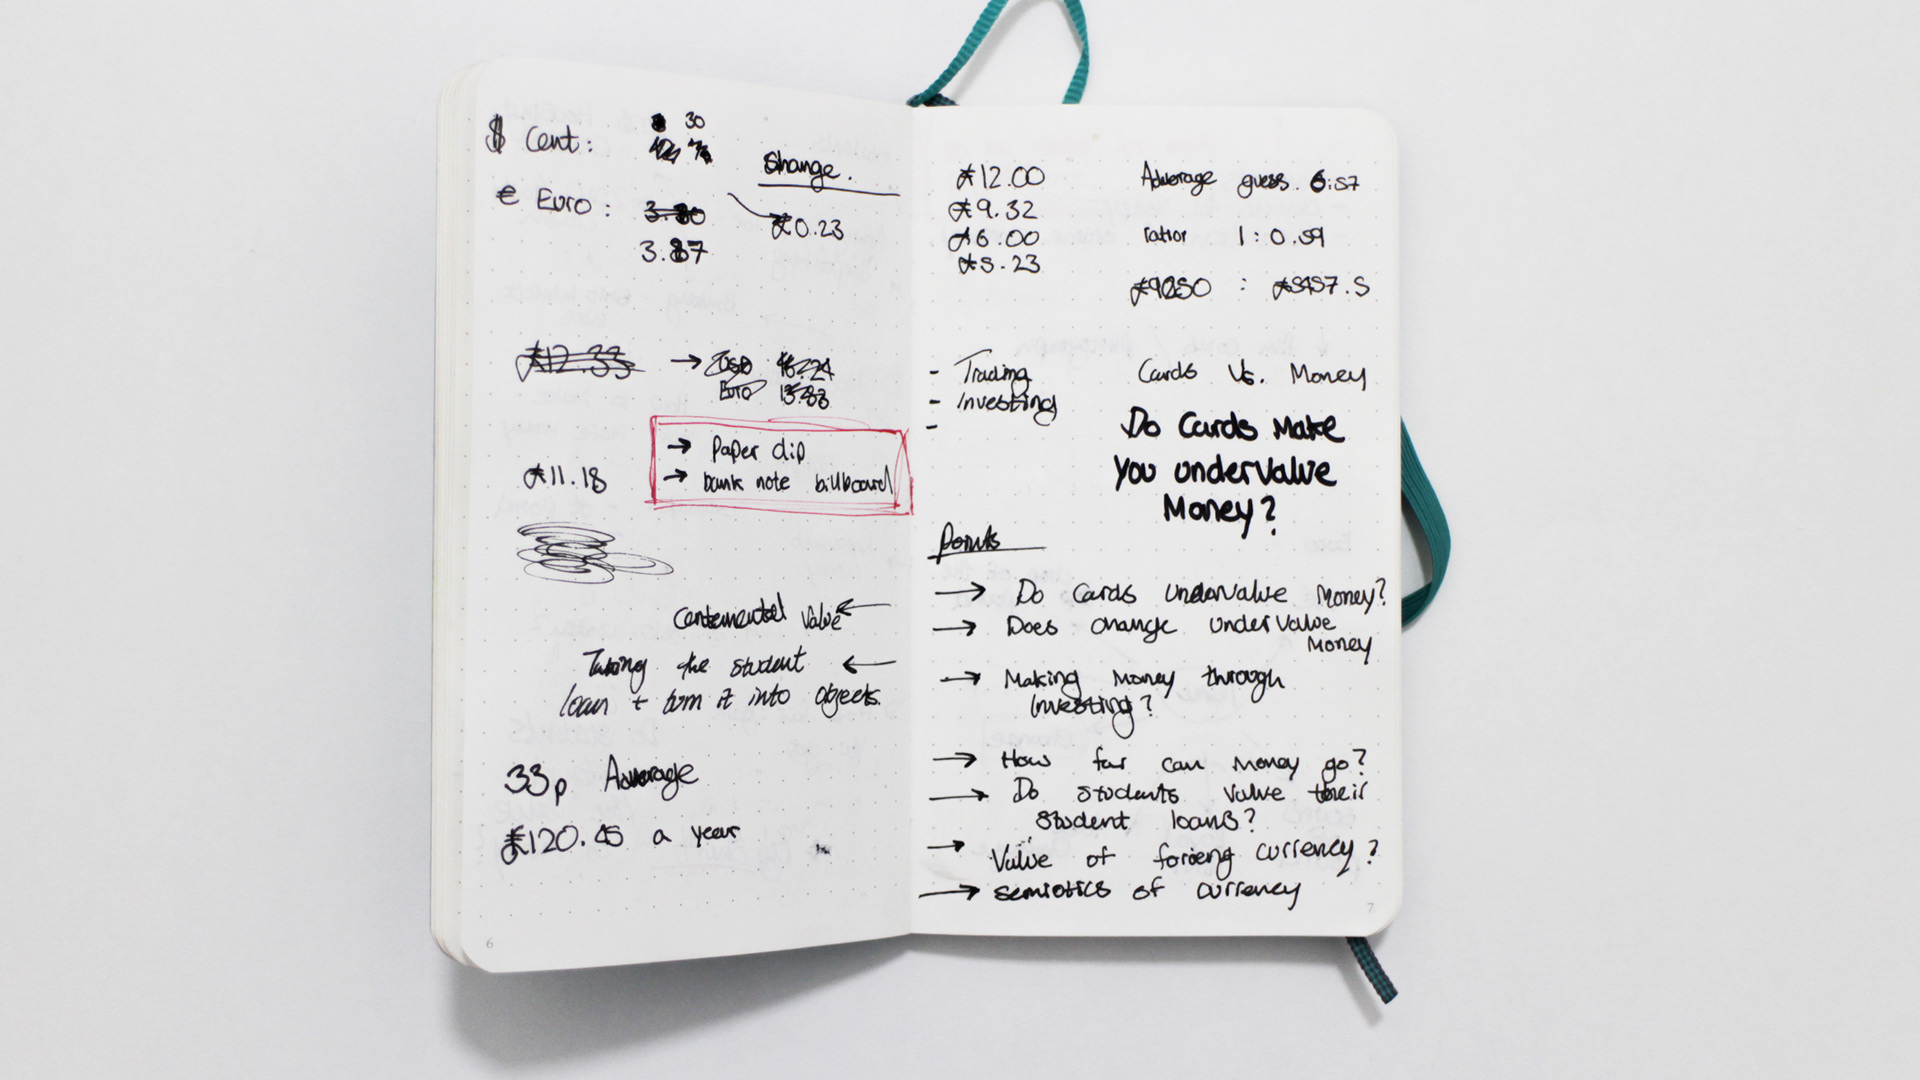 $ Cent: 30
change.
€ Euro: 3.80
£0.23
3.87
£12.33 → USD 16.24
Euro 13.83
→ Paper clip
→ bank note billboard
£11.18
Contemental Value ←
Taking the student ←
loan + turn it into objects.
33p Average
£120.45 a year
6
£12.00
£9.32
£6.00
£5.23
Average guess. 6.57
ratio 1 : 0.59
£9250 : £5457.5
- Trading
- Investing
-
Cards Vs. Money
Do Cards Make
You undervalue
Money?
Points
→ Do cards undervalue money?
→ Does change undervalue
Money
→ Making Money through
Investing?
→ How far can money go?
→ Do students value their
student loans?
→ Value of forieng currency?
→ semiotics of currency
7